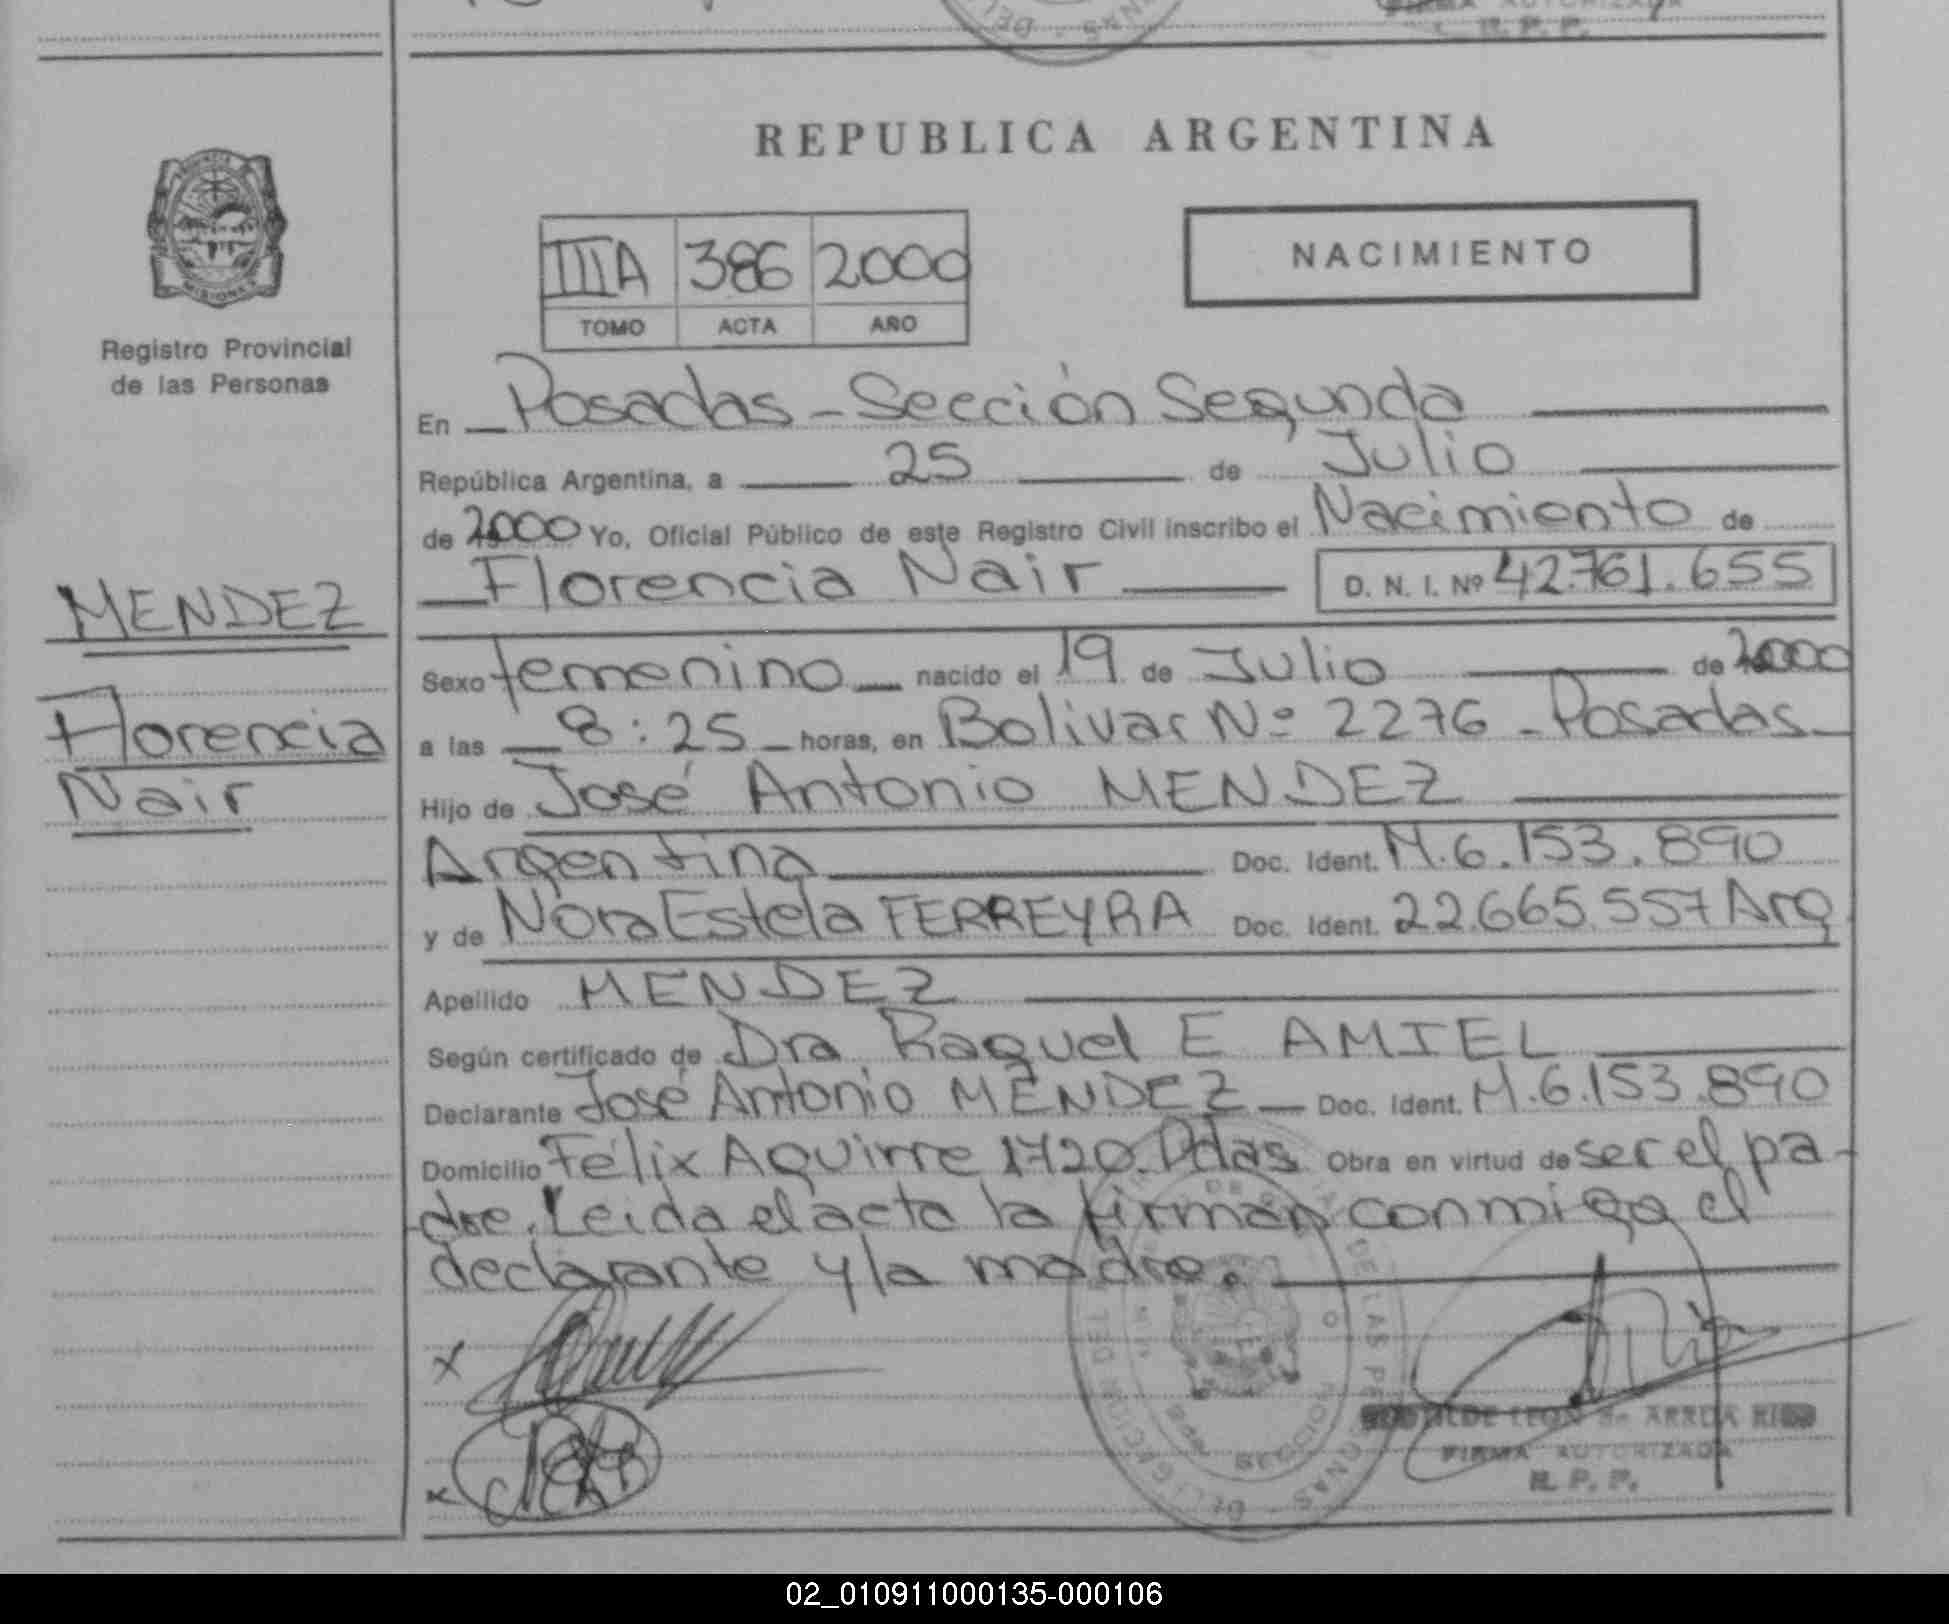 FIRMA AUTORIZADA
R. P. P.
REPUBLICA ARGENTINA
MISIONES
Registro Provincial
de las Personas
IIIA 386 2000
TOMO ACTA AÑO
NACIMIENTO
En Posadas - Sección Segunda
República Argentina, a 25 de Julio
de 2000 Yo, Oficial Público de este Registro Civil inscribo el Nacimiento de
Florencia Nair D. N. I. Nº 42.761.655
MENDEZ
Florencia
Nair
Sexo femenino nacido el 19 de Julio de 2000
a las 8:25 horas, en Bolivar Nº 2276 - Posadas
Hijo de José Antonio MENDEZ
Argentina Doc. Ident. M.6.153.890
y de Nora Estela FERREYRA Doc. Ident. 22.665.557 Arg
Apellido MENDEZ
Según certificado de Dra Raquel E AMIEL
Declarante José Antonio MENDEZ Doc. Ident. M.6.153.890
Domicilio Félix Aguirre 1720. Pdas Obra en virtud de ser el pa-
dre. Leida el acta la firman conmigo el
declarante y la madre.
DE LAS PERSONAS
SECCION
LEON de ARRUA
FIRMA AUTORIZADA
R. P. P.
02_010911000135-000106